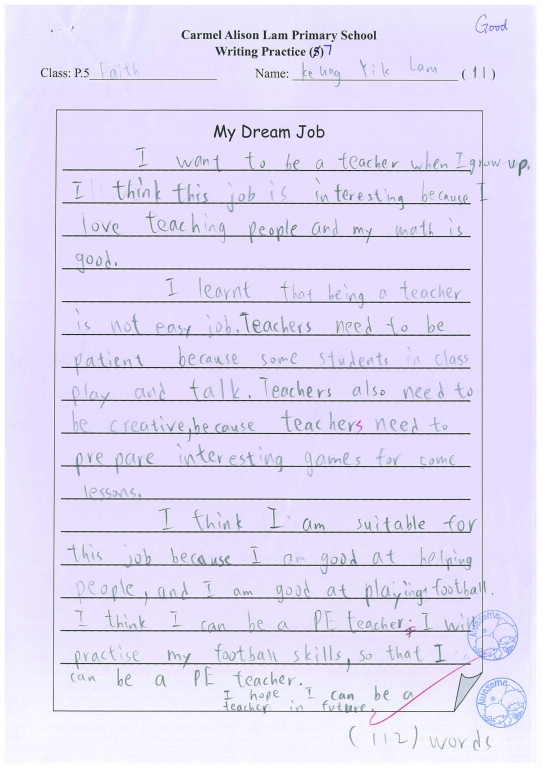 Good
Carmel Alison Lam Primary School
Writing Practice (5)7
Class: P.5 Faith Name: Keung Yik Lam (11)
My Dream Job
I want to be a teacher when I grow up.
I think this job is interesting because I
love teaching people and my math is
good.
I learnt that being a teacher
is not easy job. Teachers need to be
patient because some students in class
play and talk. Teachers also need to
be creative, because teachers need to
prepare interesting games for some
lessons.
I think I am suitable for
this job because I am good at helping
people, and I am good at playing football.
I think I can be a PE teacher. I will
practise my football skills, so that I
can be a PE teacher.
I hope I can be a
teacher in future.
Awesome
Awesome
(112) words